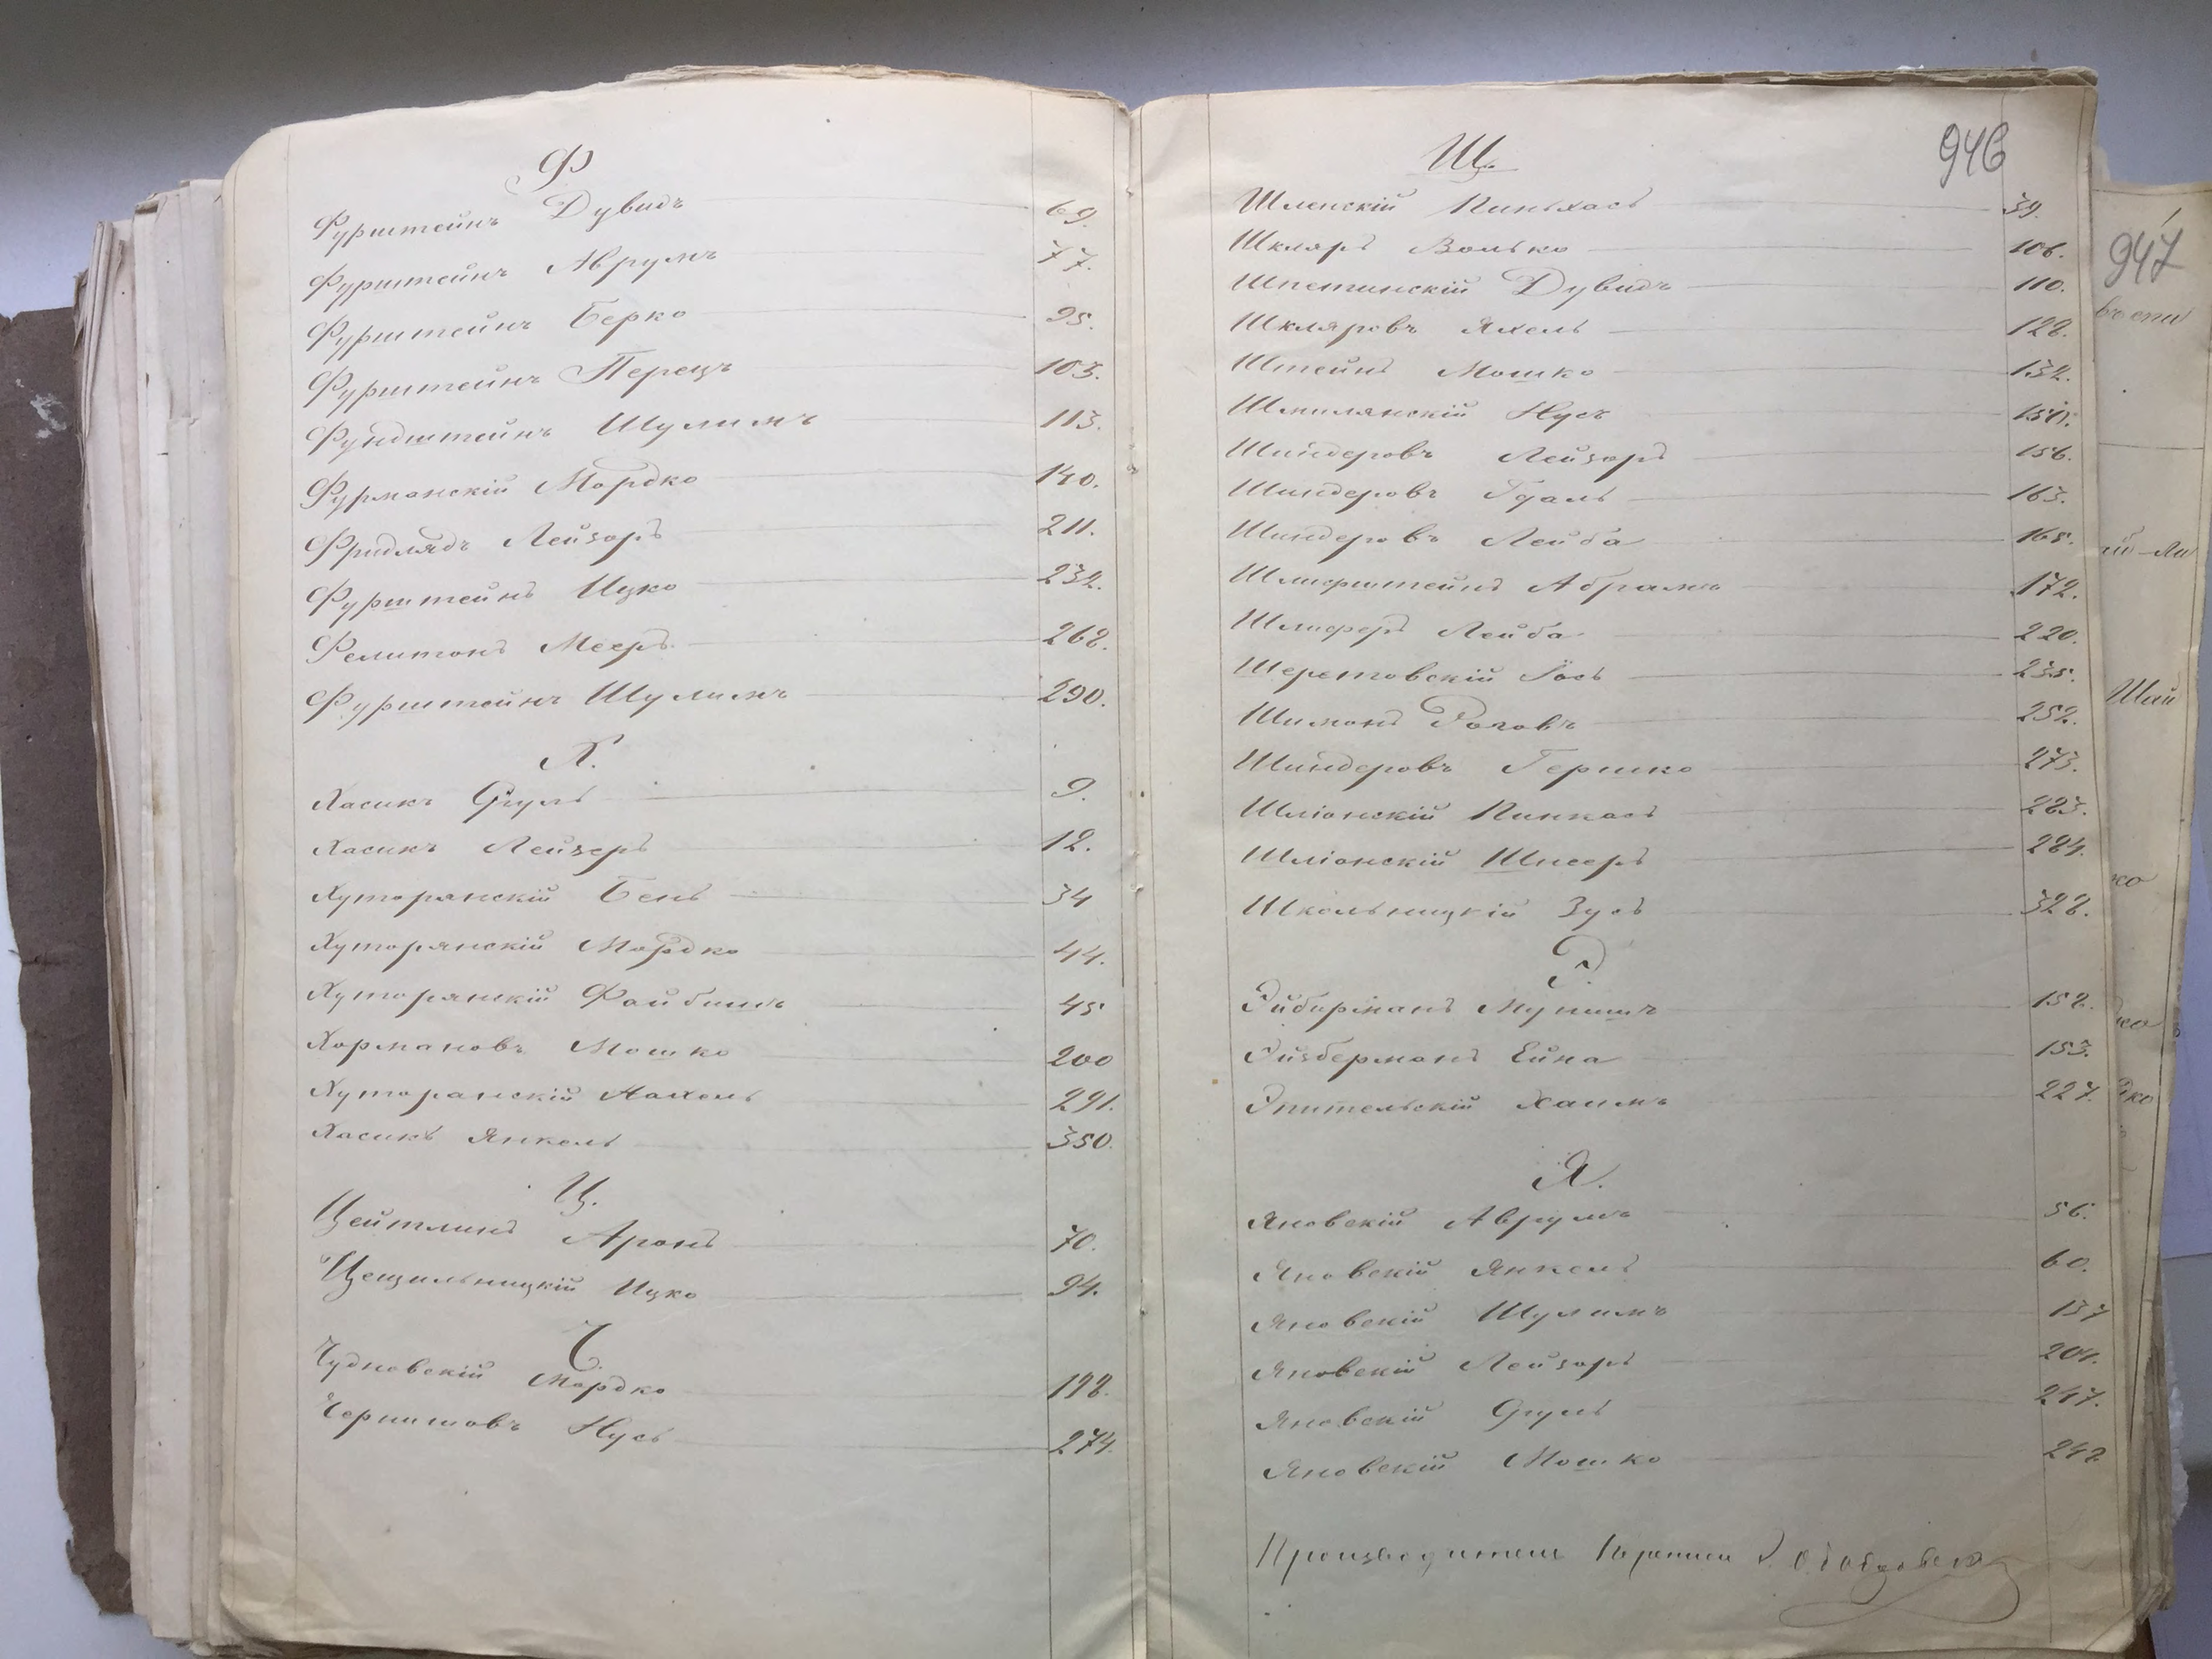 Ф
Фурштейнъ Дувидъ 69.
Фурштейнъ Аврумъ 77.
Фурштейнъ Берко 95.
Фурштейнъ Перецъ 103.
Фундштейнъ Шулимъ 113.
Фурманскій Мордко 140.
Фридлядъ Лейзоръ 211.
Фурштейнъ Ицко 232.
Фелитонъ Мееръ 268.
Фурштейнъ Шулимъ 290.
Х.
Хасикъ Сруль 9.
Хасикъ Лейзеръ 12.
Хуторянскій Бень 34
Хуторянскій Мордко 44.
Хуторянскій Файбишъ 45
Хормановъ Мошко 200
Хуторанскій 291.
Хасикъ Янкель 350.
Ц.
Цейтлинъ Аронъ 70.
Цецильницкій Ицко 94.
Ч.
Чудновскій Мордко 198.
Чернишовъ Нусь 274.
Ш.
946
Шленскій Пиньхасъ 39.
Шкляръ Волько 106.
Шпетинскій Дувидъ 110.
Шкляровъ Яхель 128.
Штейнъ Мошко 132.
Шмилянскій Нусъ
Шиндеровъ Лейзоръ 156.
Шиндеровъ Гдаль 163.
Шиндеровъ Лейба 165.
Шлифштейнъ Абрамъ 172.
Шлиферъ Лейба 220.
Шеретовскій Іось 235.
Шимонъ Роговъ 252.
Шиндеровъ Гершко 273.
Шліонскій Пинкасъ 283.
Шліонскій Шнееръ 284.
Школьницкій Зусь 328.
Э.
Мунишъ 152.
Эйзберманъ Ейна 153.
Эпительскій Хаимъ 227.
Я.
Яновскій Аврумъ 56.
Яновскій Янкель 60.
Яновскій Шулимъ 137
Яновскій Лейзоръ 204.
Яновскій Сруль 247.
Яновскій Мошко 248
Производитель Переписи
947
Шай